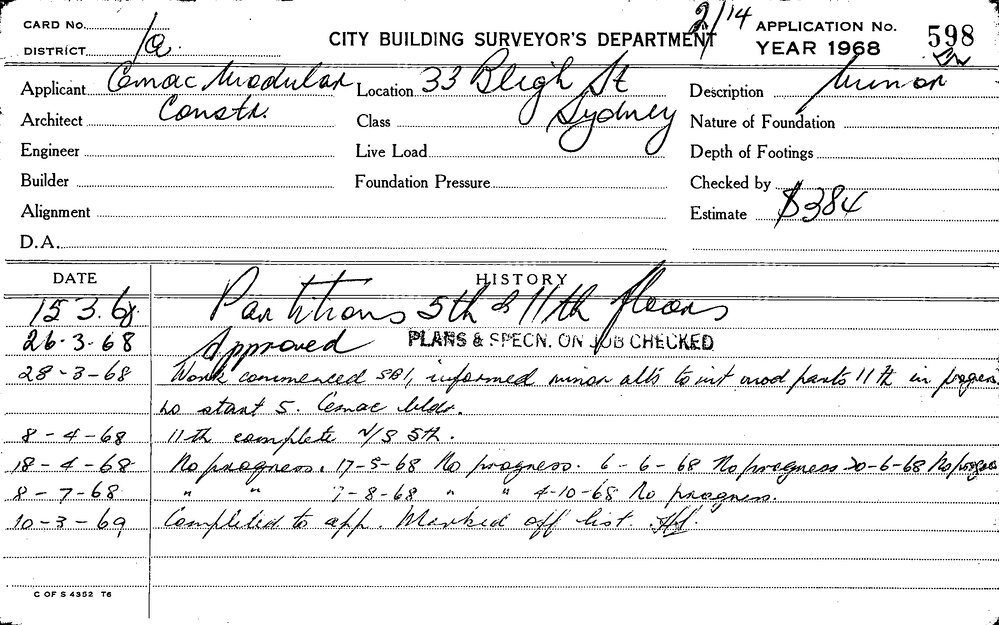 CARD No.
DISTRICT 1a.
CITY BUILDING SURVEYOR'S DEPARTMENT
2/14 APPLICATION No. 598
YEAR 1968
Applicant Cemac Modular Constr.
Location 33 Bligh St Sydney
Description Minor
Architect
Class
Nature of Foundation
Engineer
Live Load
Depth of Footings
Builder
Foundation Pressure
Checked by
Alignment
Estimate $384
D.A.
DATE HISTORY
15 3. 68 Partitions 5th & 11th floors
26-3-68 Approved PLANS & SPECN. ON JOB CHECKED
28-3-68 Work commenced informed minor alts to int mod parts 11th in progress
no start 5. Cemac bldr.
8-4-68 11th complete N/S 5th.
18-4-68 No progress. 17-5-68 No progress. 6-6-68 No progress 20-6-68 No progress
8-7-68 " " 7-8-68 " " 4-10-68 No progress.
10-3-69 Completed to app. Marked off list.
C OF S 4352 T6